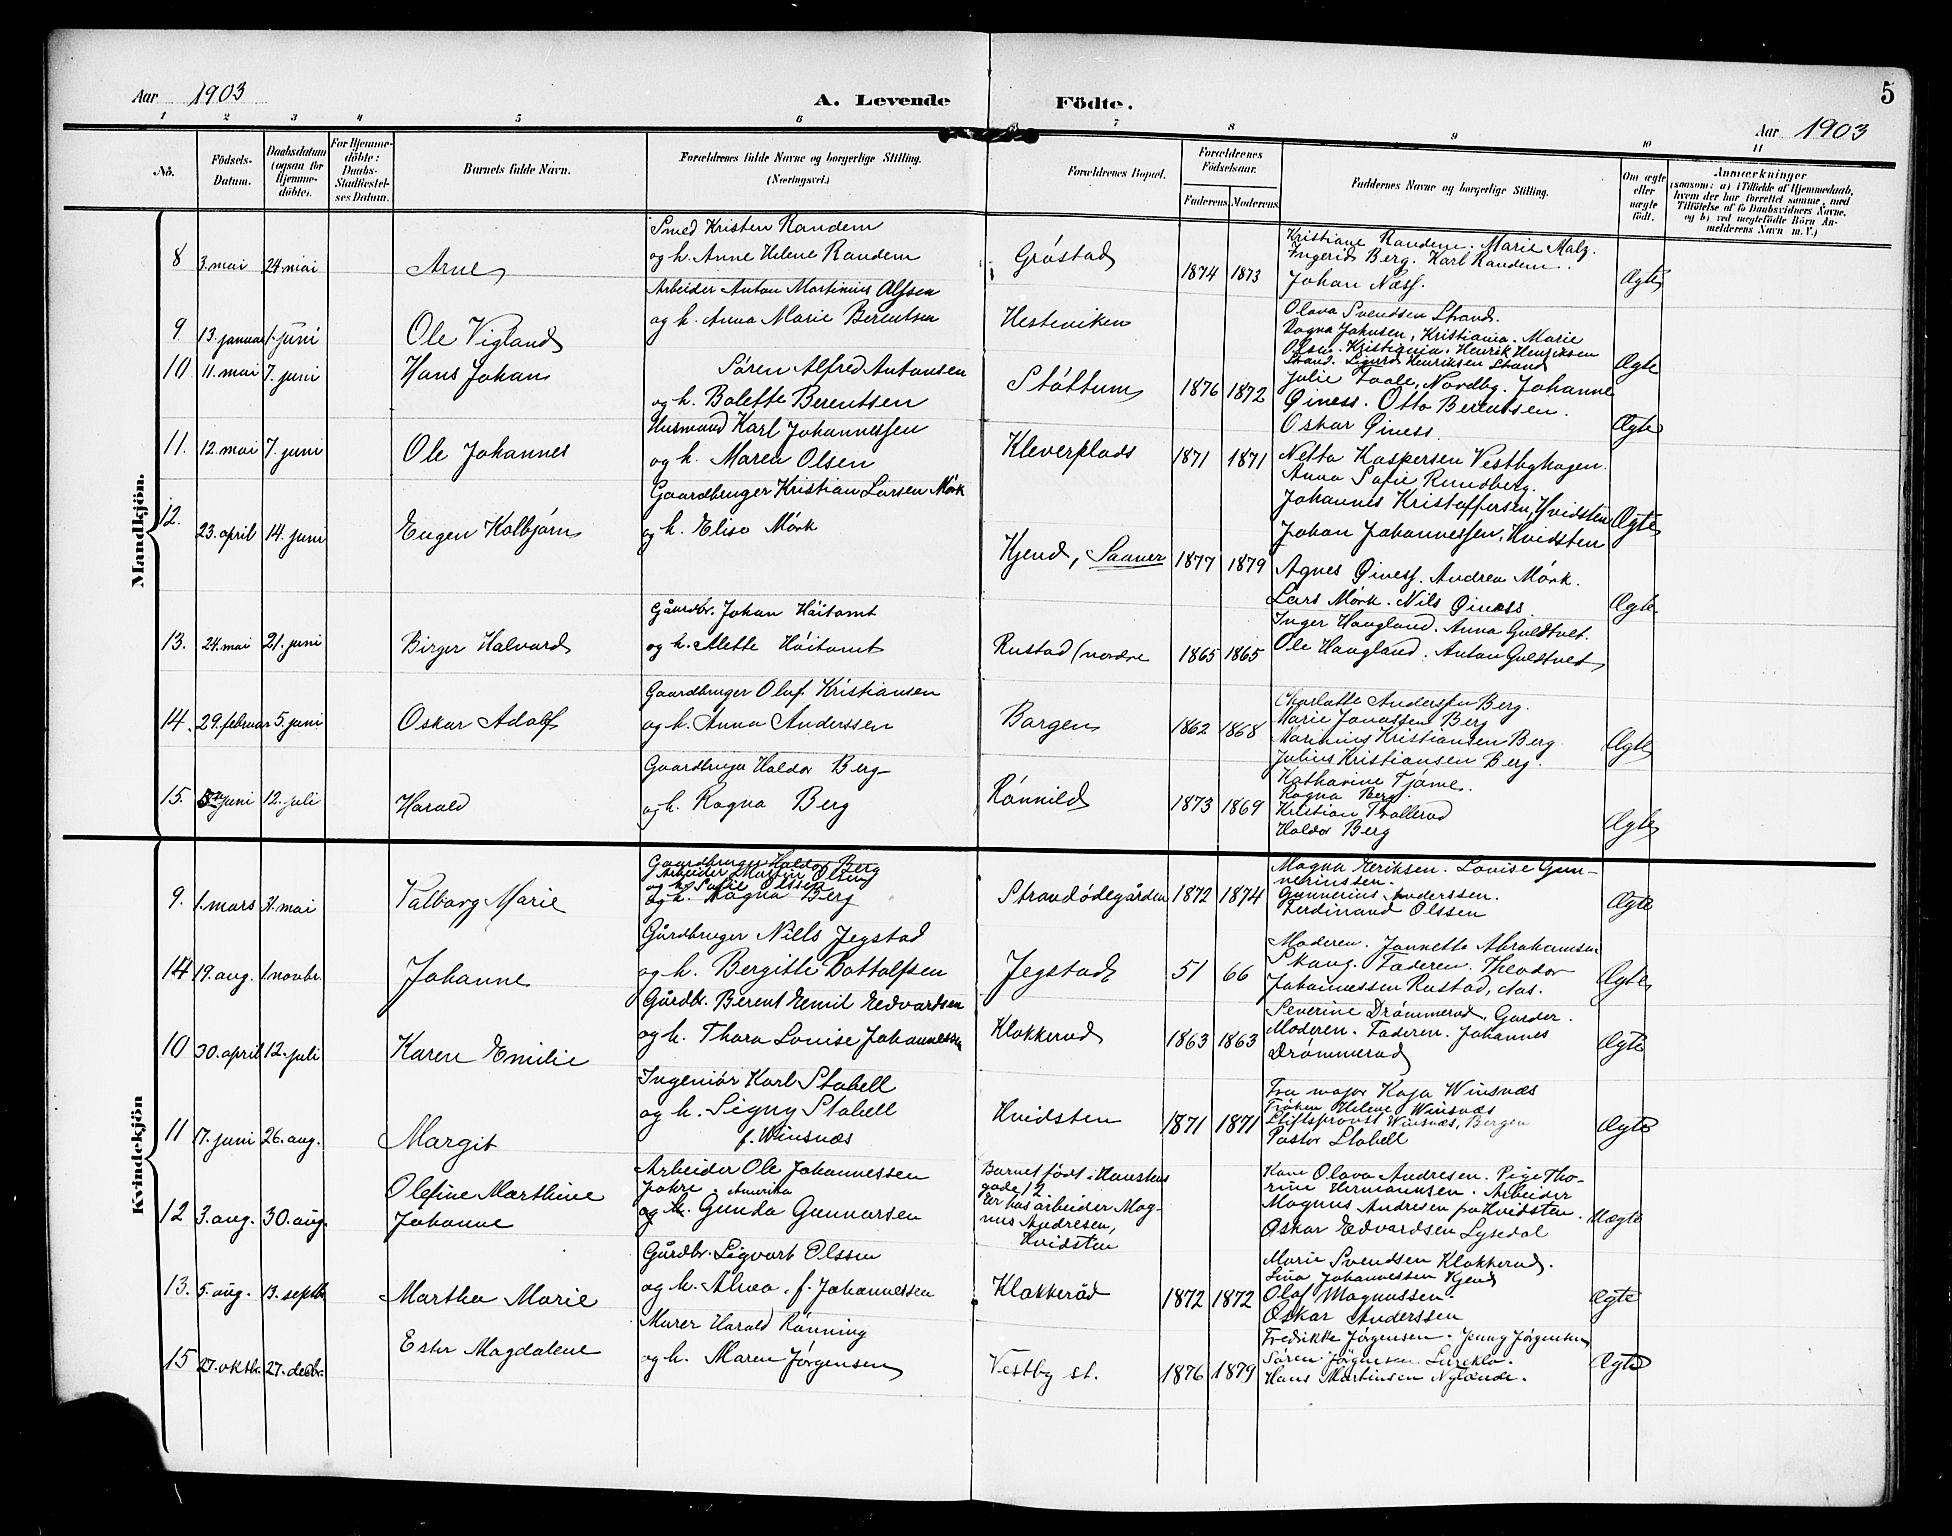 5
Aar 1903
A. Levende Födte.
Aar 1903
1 2 3 4 5 6 7 8 9 10 11
No.
Födsels-Datum.
Daabsdatum (ogsaa for Hjemmedöbte).
For Hjemmedöbte: Daabs-Stadfæstelses Datum.
Barnets fulde Navn.
Forældrenes fulde Navne og borgerlige Stilling. (Næringsvei.)
Forældrenes Bopæl.
Forældrenes Födselsaar.
Faderens. Moderens.
Faddernes Navne og borgerlige Stilling.
Om ægte eller uægte födt.
Anmærkninger
(saasom: a) i Tilfælde af Hjemmedaab, hvem der har forrettet samme, med Tilföielse af to Daabsvidners Navne, og b) ved uægtefödte Börn Anmelderens Navn m. V.)
Mandkjön.
8 3. mai 24. mai Arne
Smed Kristen Randem
og h. Anne Helene Randem
Gröstad 1874 1873
Kristiane Randem. Marie Malz.
Ingerid Berg. Karl Randem.
Johan Næss.
Ægte
9 13. januar 1. juni Ole Vigland
Arbeider Anton Martinius Olssen
og h. Anna Marie Berentsen
Hesteviken
Olava Svendsen Strand.
Ragna Jahnsen, Kristiania. Marie
Olsen. Kristiania. Henrik Henriksen
Strand. Sigurd Henriksen Strand
Ægte
10 11. mai 7. juni Hans Johan
Søren Alfred Antonsen
og h. Bolette Berentsen
Støttum 1876 1872
Julie Taale, Nordby. Johanne
Øiness. Otto Berentsen.
Oskar Øiness.
Ægte
11. 12. mai 7. juni Ole Johannes
Husmand Karl Johannessen
og h. Maren Olsen
Kleverplads 1871 1871
Netta Kaspersen Vestbyhagen.
Anna Sofie Rundberg.
Johannes Kristoffersen, Hvidsten
Johan Johannessen, Hvidsten
Ægte
12. 23. april 14. juni Eugen Kolbjørn
Gaardbruger Kristian Larsen Mörk
og h. Elise Mörk
Kjend, Saaner 1877 1879
Agnes Øiness. Andrea Mörk.
Lars Mörk. Nils Øiness.
Ægte
13. 24. mai 21. juni Birger Halvard
Gårdbr. Johan Höitomt
og h. Alette Höitomt
Rustad (nordre 1865 1865
Inger Haugland. Anna Guldtvet.
Ole Haugland. Anton Guldtvet
14. 29. februar 5. juni Oskar Adolf
Gaardbruger Oluf Kristiansen
og h. Anna Anderssen
Bargen 1862 1868
Charlotte Anderssen Berg.
Marie Jonassen Berg
Marinius Kristiansen Berg
Julius Kristiansen Berg.
Ægte
15. juni 12. juli Harald
Gaardbruger Haldor Berg
og h. Ragna Berg
Rönnild 1873 1869
Katharine Tjöme.
Ragna Berg.
Kristian Trollerud
Haldor Berg
Ægte
Kvindekjön
9. 1. mars 31. mai Valborg Marie
Gaardbruger Haldor Berg
Arbeider Martin Olsen
og h. Sofie Olssen
og h. Ragna Berg
Strandödegården 1872 1874
Magna Eriksen. Lovise Gunnerinssen.
Gunnerius Anderssen.
Ferdinand Olssen
Ægte
14 19. aug. 1. novbr. Johanne
Gårdbruger Nills Jegstad
og h. Bergitte Bottolfsen
Jegstad 51 66
Moderen. Jannetta Abrahamsen
Skaug. Faderen. Theodor
Johannessen Rustad, Aas.
Ægte
10 30. april 12. juli Karen Emilie
Gårdbr. Berent Emil Edvardsen
og h. Thora Louise Johannessen
Klokkerud 1863 1863
Severine Drömmerud, Garder.
Moderen. Faderen. Johannes
Drömmerud
Ægte
11 17. juni 26. aug. Margit
Ingeniör Karl Stabell
og h. Signy Stabell
f. Winsnæs
Hvidsten 1871 1871
Fru major Kaja Winsnæs
Fröken Helene Winsnæs
Stiftsprovst Winsnæs, Bergen
Pastor Stabell
Ægte
12 3. aug. 30. aug. Olefine Marthine
Johanne
Arbeider Ole Johannessen
Amerika
og h. Gunda Gunnarsen
Barnet födt i
gade 12
Er hos arbeider Magnus Andresen,
Hvidsten
Kone Olava Andresen. Pige Thorine Hermannsen. Arbeider
Magnus Andresen fra Hvidsten.
Oskar Edvardsen Lysedal
Uægte
13. 5. aug. 13. septbr. Martha Marie
Gårdbr. Sigvart Olssen
og h. Alvea. f. Johannessen
Klokkeröd 1872 1872
Marie Svendsen Klokkerud.
Lina Johannessen Kjend
Olaf Magnussen.
Oskar Anderssen
Ægte
15 27. oktbr. 27. decbr. Ester Magdalene
Murer Harald Rönning
og h. Maren Jörgensen
Vestby st. 1876 1879
Fredrikke Jörgensen. Jenny Jörgensen
Sören Jörgensen
Hans Martinsen Nylænde.
Ægte